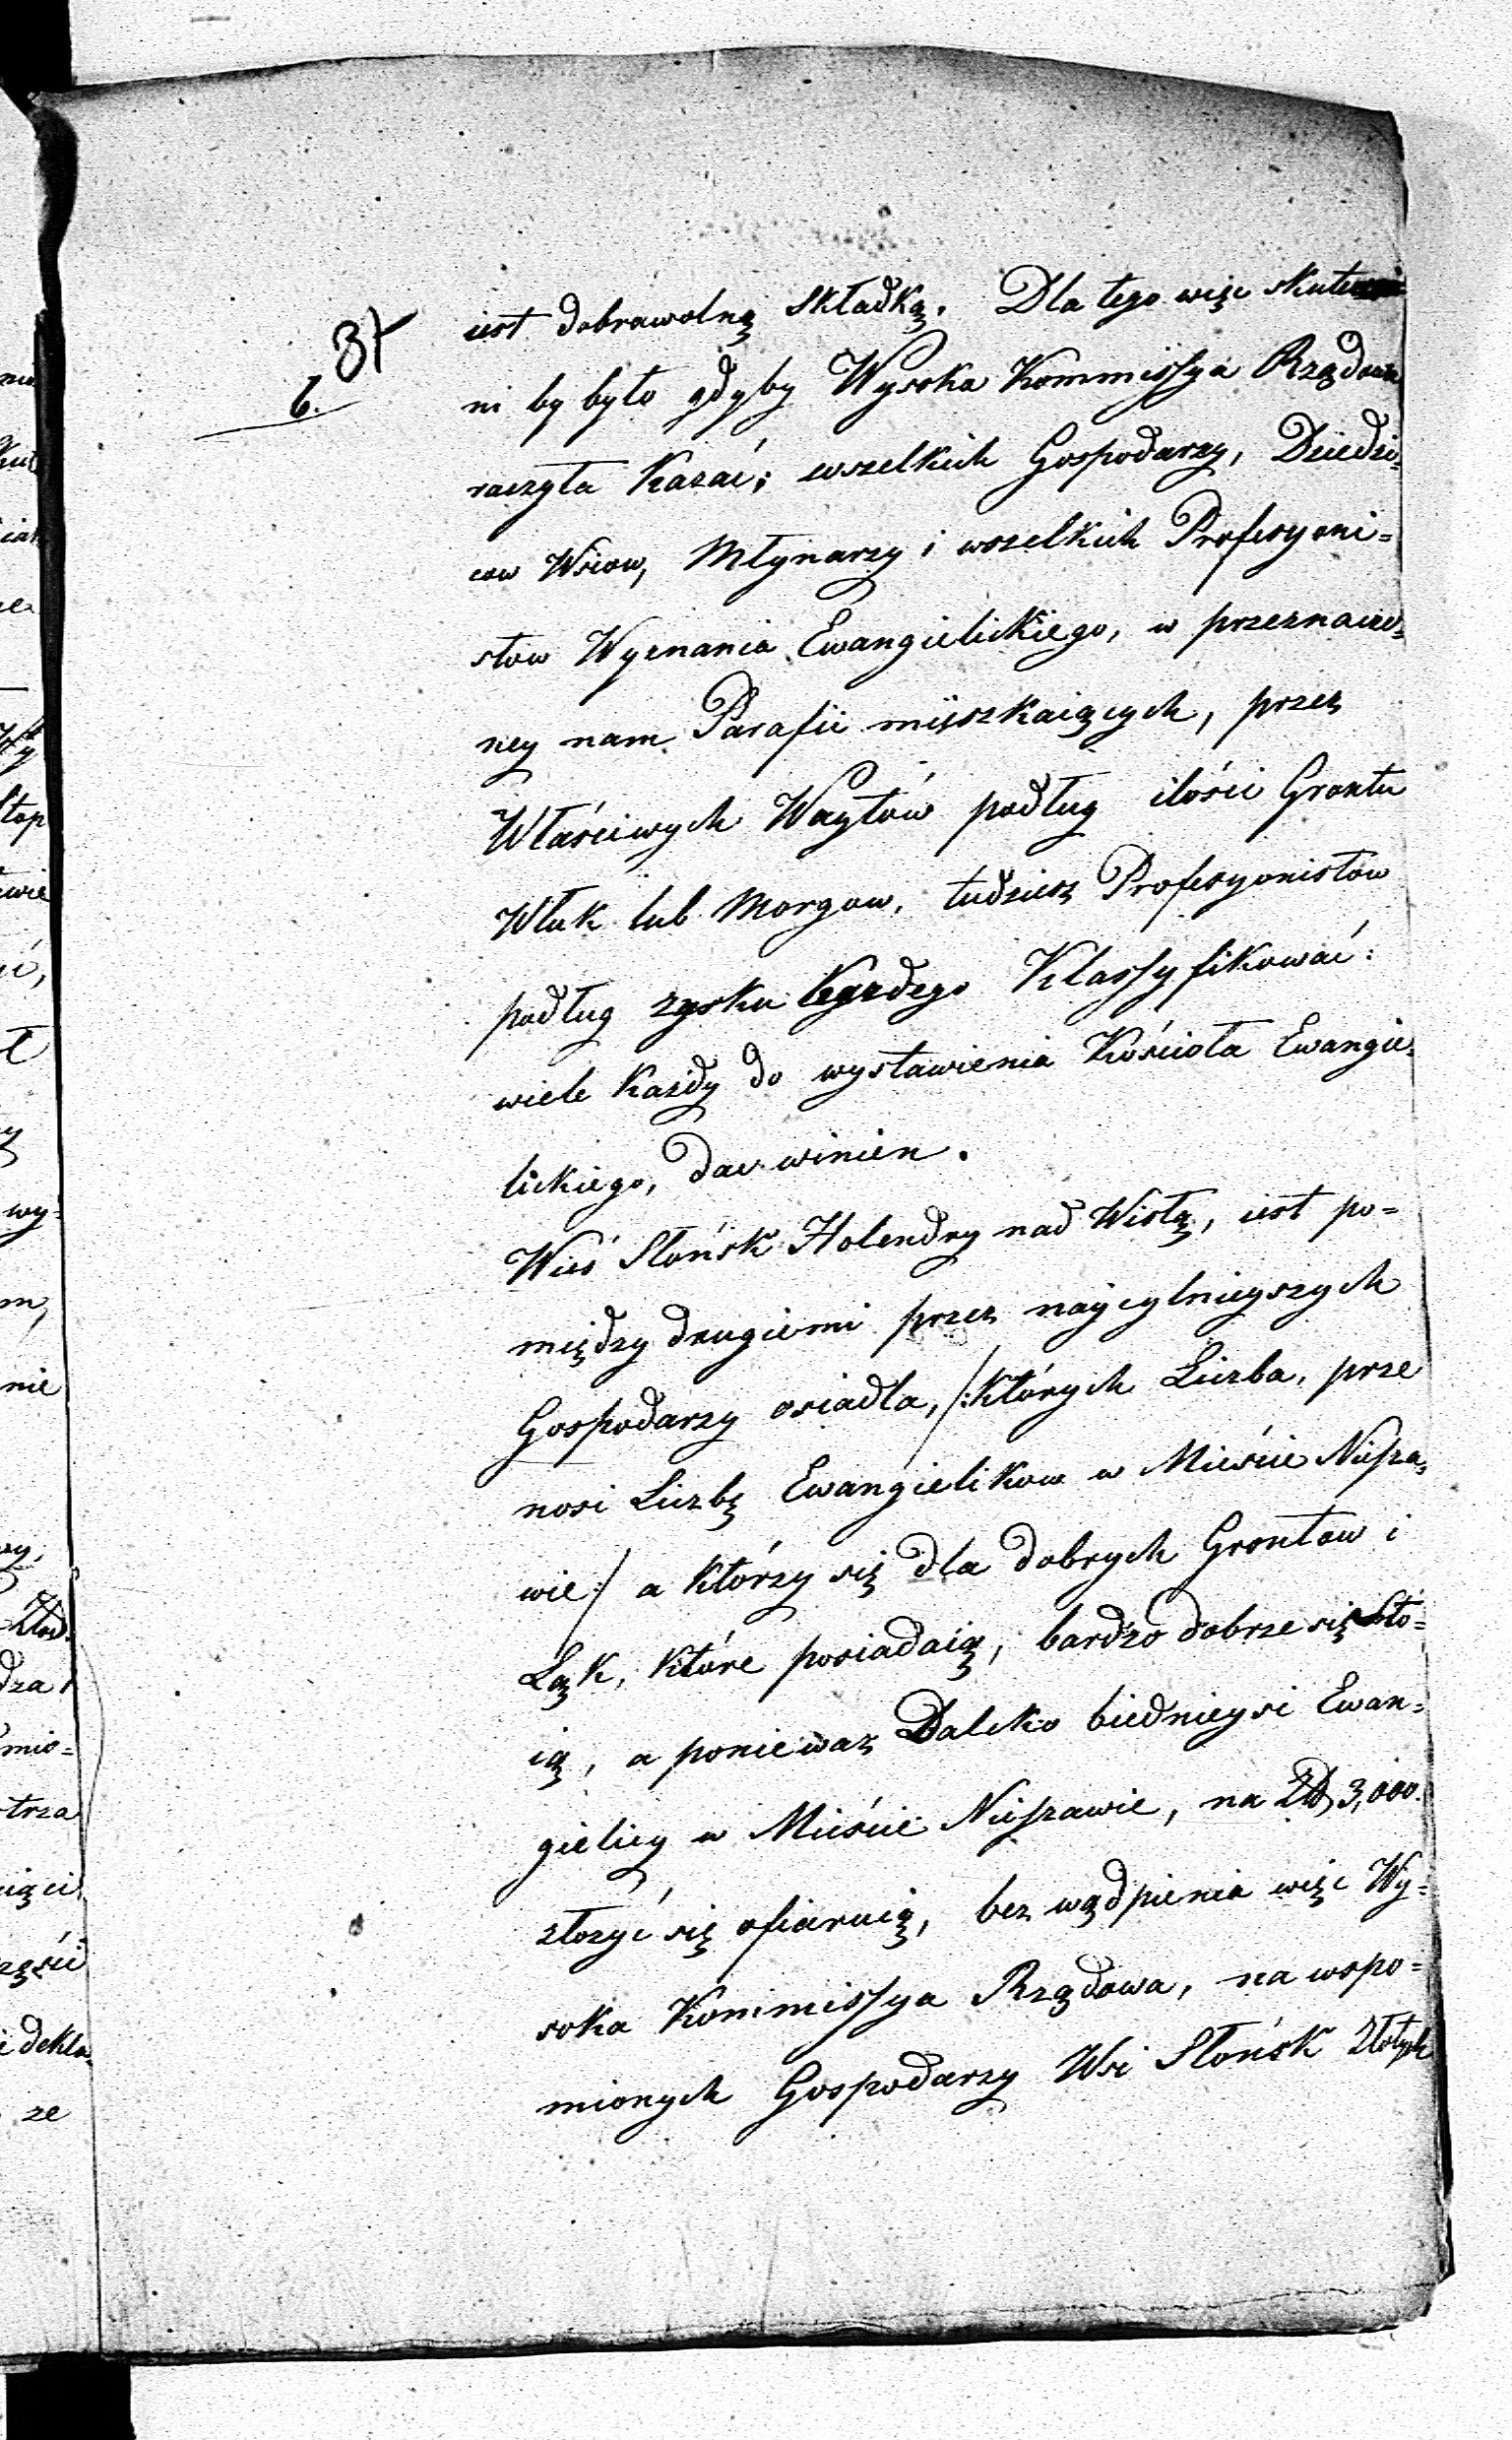 37
6.
iest dobrawolną Składką. Dla tego więc skutecz
ni by było gdyby Wysoka Kommissya Rządowa
raczyła Kazać; wszelkich Gospodarzy, Dziedzi=
cow Wsiow, Młynarzy i wszelkich Profesyoni=
stow Wyznania Ewangielickiego, w przeznaczo=
ney nam Parafii mięszkaiących, przez
Właściwych Waytów podług ilości Grontu
Włuk lub Morgow, tudziesz Profesyonistow
podług zysku każdego Klassyfikować:
wiele Każdy do wystawienia Kościoła Ewangie=
lickiego, dać winien.
Wieś Słońsk Holendry nad Wisłą, iest po=
między drugiemi przez naycylnieyszych
Gospodarzy osiadła, /:Których Liczba, prze
nosi Liczbę Ewangielikow w Mieście Niesza=
wie:/ a Którzy się dla dobrych Grontow i
Łąk, Które posiadaią, bardzo dobrze się sto=
ią, a poniewaz Daleko biednieysi Ewan=
gielicy w Mieście Nieszawie, na Zł 3,000.
złozyć się ofiaruią, bez wądpienia więc Wy=
soka Kommissya Rządowa, na wspo=
mionych Gospodarzy Wsi Słońsk Złotych